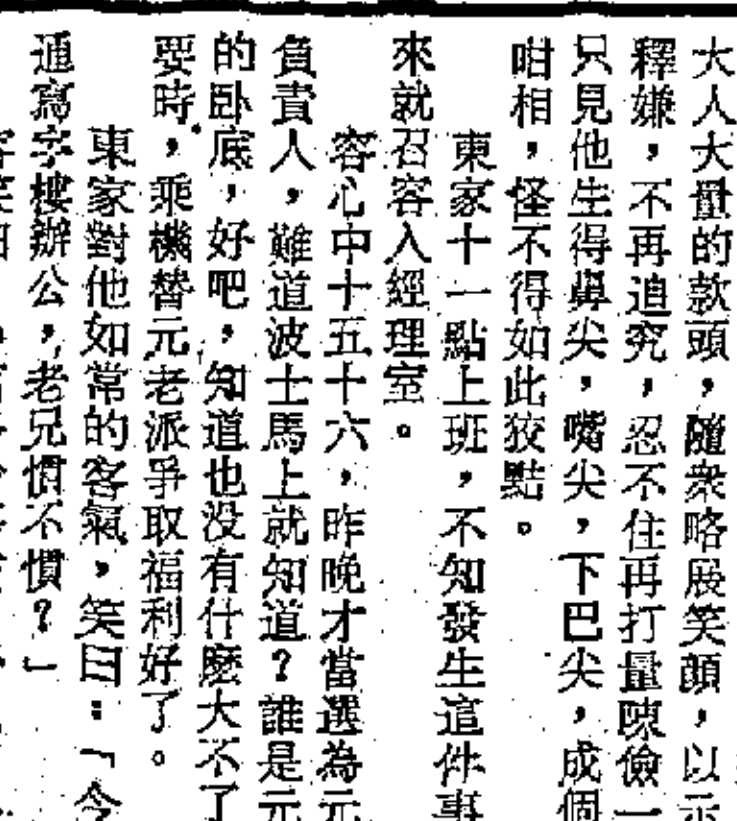 大人大量的款頭，隨衆略展笑顏，以示
釋嫌，不再追究，忍不住再打量陳儉一
只見他生得鼻尖，嘴尖，下巴尖，成個
咁相，怪不得如此狡黠。
東家十一點上班，不知發生這件事
來就召容入經理室。
容心中十五十六，昨晚才當選為元
負責人，難道波士馬上就知道？誰是元
的卧底，好吧，知道也没有什麽大不了
要時，乘機替元老派爭取福利好了。
東家對他如常的客氣，笑曰：「今
通寫字樓辦公，老兄慣不慣？」